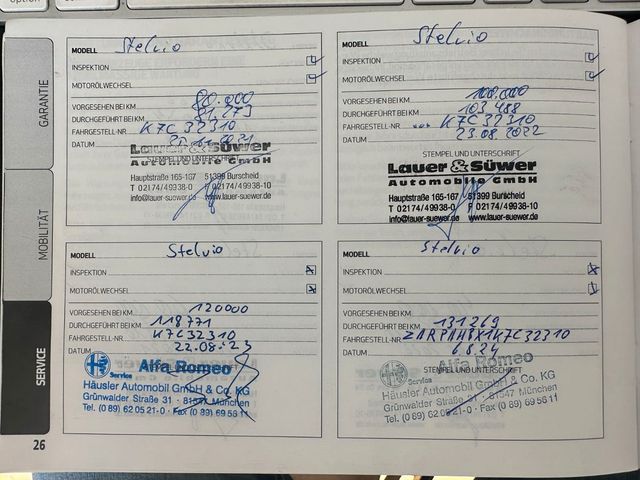 option
GARANTIE
MOBILITÄT
SERVICE
26
MODELL Stelvio
INSPEKTION
MOTORÖLWECHSEL
VORGESEHEN BEI KM 80.000
DURCHGEFÜHRT BEI KM 81.273
FAHRGESTELL-NR K7C32310
DATUM
STEMPEL UND UNTERSCHRIFT
Lauer & Süwer
Automobile GmbH
Hauptstraße 165-167 51399 Burscheid
T 02174/49938-0 F 02174/49938-10
info@lauer-suewer.de www.lauer-suewer.de
MODELL Stelvio
INSPEKTION
MOTORÖLWECHSEL
VORGESEHEN BEI KM 100.000
DURCHGEFÜHRT BEI KM 103488
FAHRGESTELL-NR K7C32310
DATUM 23.08.2022
STEMPEL UND UNTERSCHRIFT
Lauer & Süwer
Automobile GmbH
Hauptstraße 165-167 51399 Burscheid
T 02174/49938-0 F 02174/49938-10
info@lauer-suewer.de www.lauer-suewer.de
MODELL Stelvio
INSPEKTION
MOTORÖLWECHSEL
VORGESEHEN BEI KM 120000
DURCHGEFÜHRT BEI KM 118771
FAHRGESTELL-NR K7C32310
DATUM 22.08.23
Alfa Romeo
Service
Häusler Automobil GmbH & Co. KG
Grünwalder Straße 31 · 81547 München
Tel. (0 89) 62 05 21-0 · Fax (0 89) 69 56 11
MODELL Stelvio
INSPEKTION
MOTORÖLWECHSEL
VORGESEHEN BEI KM
DURCHGEFÜHRT BEI KM 131269
FAHRGESTELL-NR ZARPAHBX1K7C32310
DATUM 6.8.24
STEMPEL UND UNTERSCHRIFT
Alfa Romeo
Service
Häusler Automobil GmbH & Co. KG
Grünwalder Straße 31 · 81547 München
Tel. (0 89) 62 05 21-0 · Fax (0 89) 69 56 11